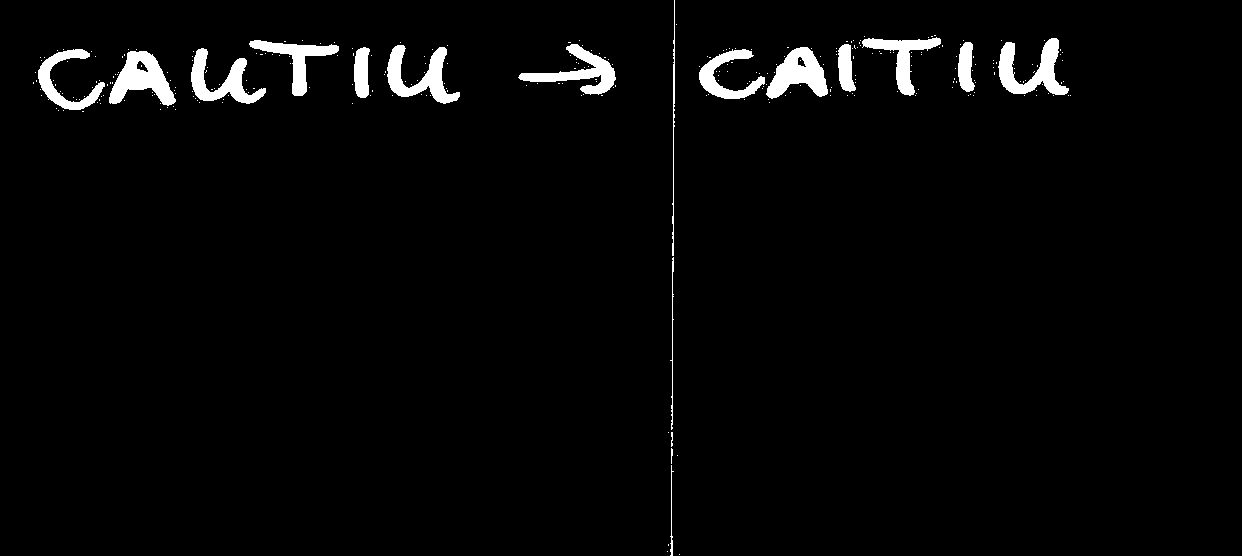 CAUTIU → CAITIU